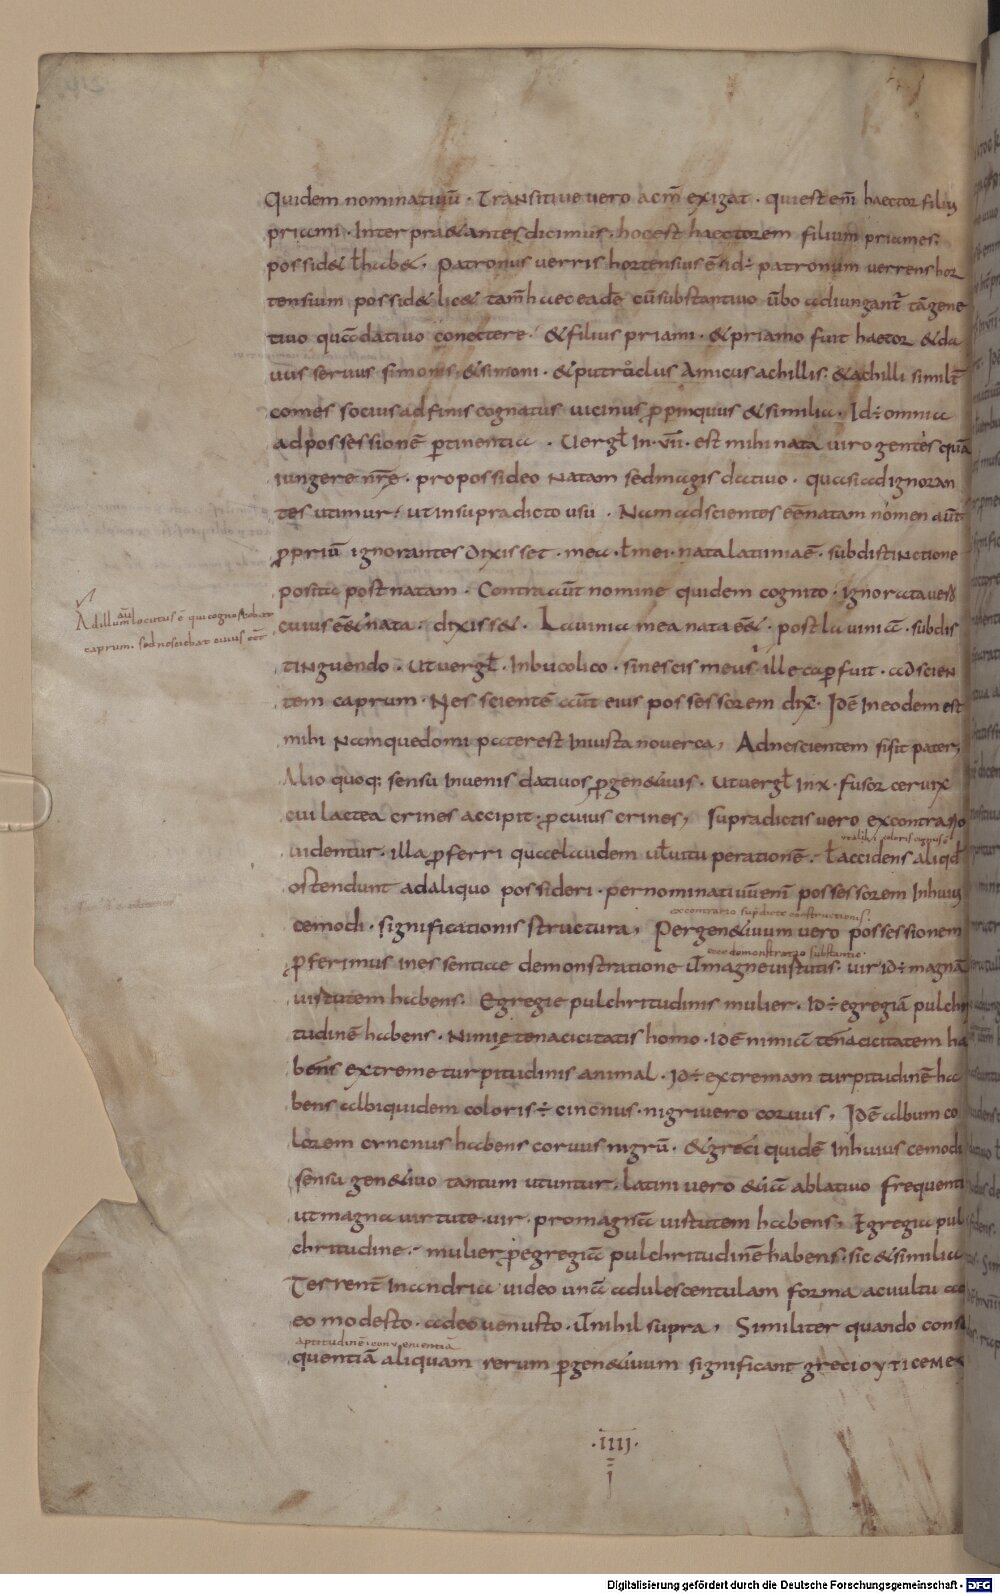 Quidem nominatiuū · Transitiue uero acm̄ exigat · qui est em̄ haector filius
priami · Interpraetantes dicimus · hoc est haectorem filium priames;
possid& ł hab& · Patronus uerris hortensius ē · id ÷ patronum uerrens hor
tensium possid& lic& tam̄ haec eadē cū substantiuo ūbo adiungant̄ tā gene
tiuo quā datiuo conectere · & filius priami · & priamo fuit haetor & da
uus seruus simonis · & simoni · & putroclus Amicus achillis · & achilli similit̄
comes socius adfinis cognatus uicinus p̱pinquus & similia · Id ÷ omnia
ad possessionē p̱tinentia · Uergł In · VII · est mihi nata uiro gentes quā
iungere nr̄e · pro possideo Natam sed magis datiuo · quasi ad ignoran
tes utimur · ut in supradicto usu · Nam ad scientes eē natam nomen aūt
p̱priū ignorantes dixisset · mea · ł mei · nata latiniaē · subdistinctione
posita post natam · Contra aūt nomine quidem cognito · ignorata uero
cuius ē& nata · dixiss& · Lauinia mea nata ē& · post lauiniā · subdis
tinguendo · Ut uergł · In bucolico · si nescis meus ille cap̱ fuit · ad scien
tem caprum · Nes scientē aūt eius possessorem dix̄ · Idē In eodem est
mihi Namque domi pater est Iniusta nouerca, Ad nescientem sisit pater;
Alio quoq; sensu Inuenis datiuos p̱ gen&iuis · Ut uergł In x · fusos ceruix
cui lactea crines accipit · p̱ cuius crines, Supradictis uero ex contrario
uidentur · illa p̱ferri quae laudem ut̄ uituperationē · ł accidens aliqd̄
ostendunt ad aliquo possideri · per nominatiuū em̄ possessorem Inhuius
cemodi · significationis structura, Per gen&iuum uero possessionem
ex contrario sup̱dicte constructionis
p̱ferimus ines sentiae demonstratione
demonstratio substantie
ut magne uirtutis · uir id ÷ magnā
uirtutem habens · Egregie pulchritudinis mulier · Id ÷ egregiā pulch
tudinē habens · Nimie tenacicitatis homo · Idē nimiā tenacicitatem ha
bens extreme turpitudinis animal · Id ÷ extremam turpitudinē ha
bens albi quidem coloris ÷ cincnus · nigri uero coruus, Idē album co
lorem crncnus habens coruus nigrū · & greci quidē Inhuius cemodi
sensu gen&iuo tantum utuntur · latini uero &iā ablatiuo frequenti
ut magna uirtute · uir · pro magnā uirtutem habens, Egregia pul
chritudine · mulier p̱ egregiā pulchritudinē habens · sic & similia
Terrent In andria uideo unā adulescentulam forma ac uultu a
eo modesto · adeo uenusto · ut nihil supra, Similiter quando cons
aptitudinē conuenientiā
quentiā aliquam rerum p̱ gen&iuum significant greci
Ad illum aūt locutus ē qui cognoscebat
caprum · sed nesciebat cuius eēt
· IIII ·